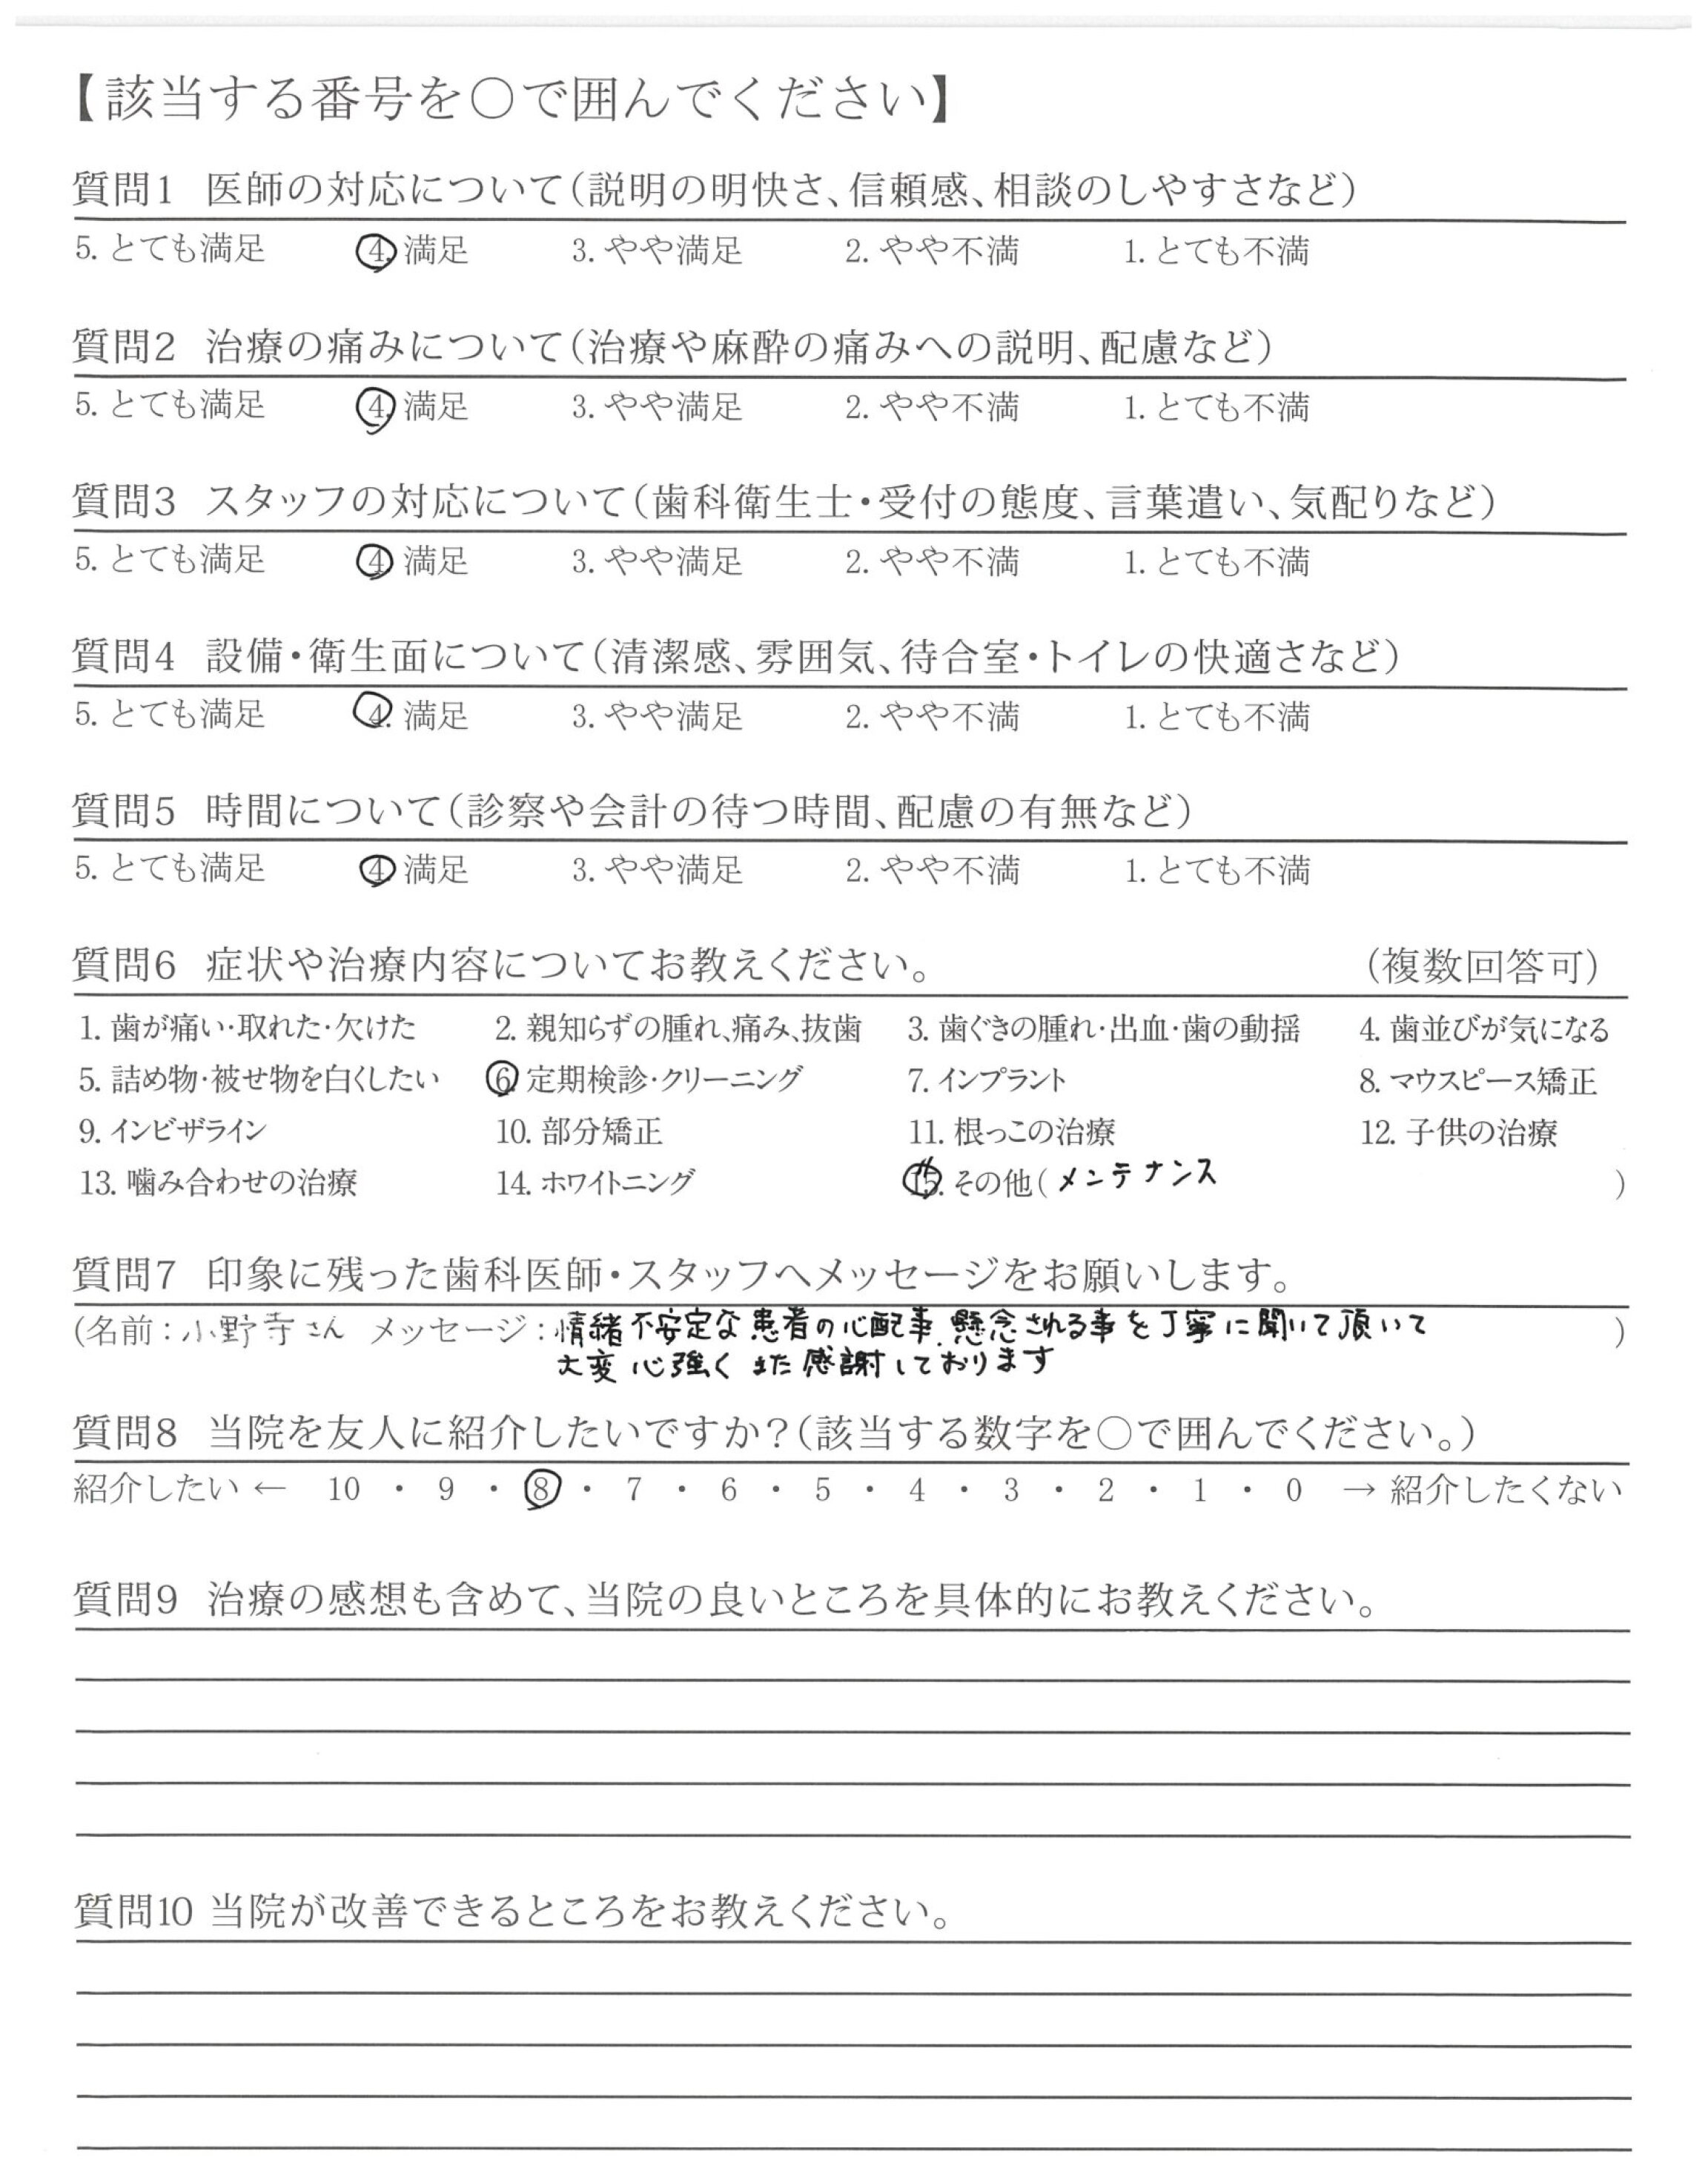 【該当する番号を○で囲んでください】
質問1 医師の対応について(説明の明快さ、信頼感、相談のしやすさなど)
5. とても満足 4. 満足 3. やや満足 2. やや不満 1. とても不満
質問2 治療の痛みについて(治療や麻酔の痛みへの説明、配慮など)
5. とても満足 4. 満足 3. やや満足 2. やや不満 1. とても不満
質問3 スタッフの対応について(歯科衛生士・受付の態度、言葉遣い、気配りなど)
5. とても満足 4. 満足 3. やや満足 2. やや不満 1. とても不満
質問4 設備・衛生面について(清潔感、雰囲気、待合室・トイレの快適さなど)
5. とても満足 4. 満足 3. やや満足 2. やや不満 1. とても不満
質問5 時間について(診察や会計の待つ時間、配慮の有無など)
5. とても満足 4. 満足 3. やや満足 2. やや不満 1. とても不満
質問6 症状や治療内容についてお教えください。 (複数回答可)
1. 歯が痛い・取れた・欠けた 2. 親知らずの腫れ、痛み、抜歯 3. 歯ぐきの腫れ・出血・歯の動揺 4. 歯並びが気になる
5. 詰め物・被せ物を白くしたい 6. 定期検診・クリーニング 7. インプラント 8. マウスピース矯正
9. インビザライン 10. 部分矯正 11. 根っこの治療 12. 子供の治療
13. 噛み合わせの治療 14. ホワイトニング 15. その他(メンテナンス )
質問7 印象に残った歯科医師・スタッフへメッセージをお願いします。
(名前:小野寺さん メッセージ:情緒不安定な患者の心配事、懸念される事を丁寧に聞いて頂いて )
大変心強くまた感謝しております
質問8 当院を友人に紹介したいですか?(該当する数字を○で囲んでください。)
紹介したい ← 10 ・ 9 ・ 8 ・ 7 ・ 6 ・ 5 ・ 4 ・ 3 ・ 2 ・ 1 ・ 0 → 紹介したくない
質問9 治療の感想も含めて、当院の良いところを具体的にお教えください。
質問10 当院が改善できるところをお教えください。